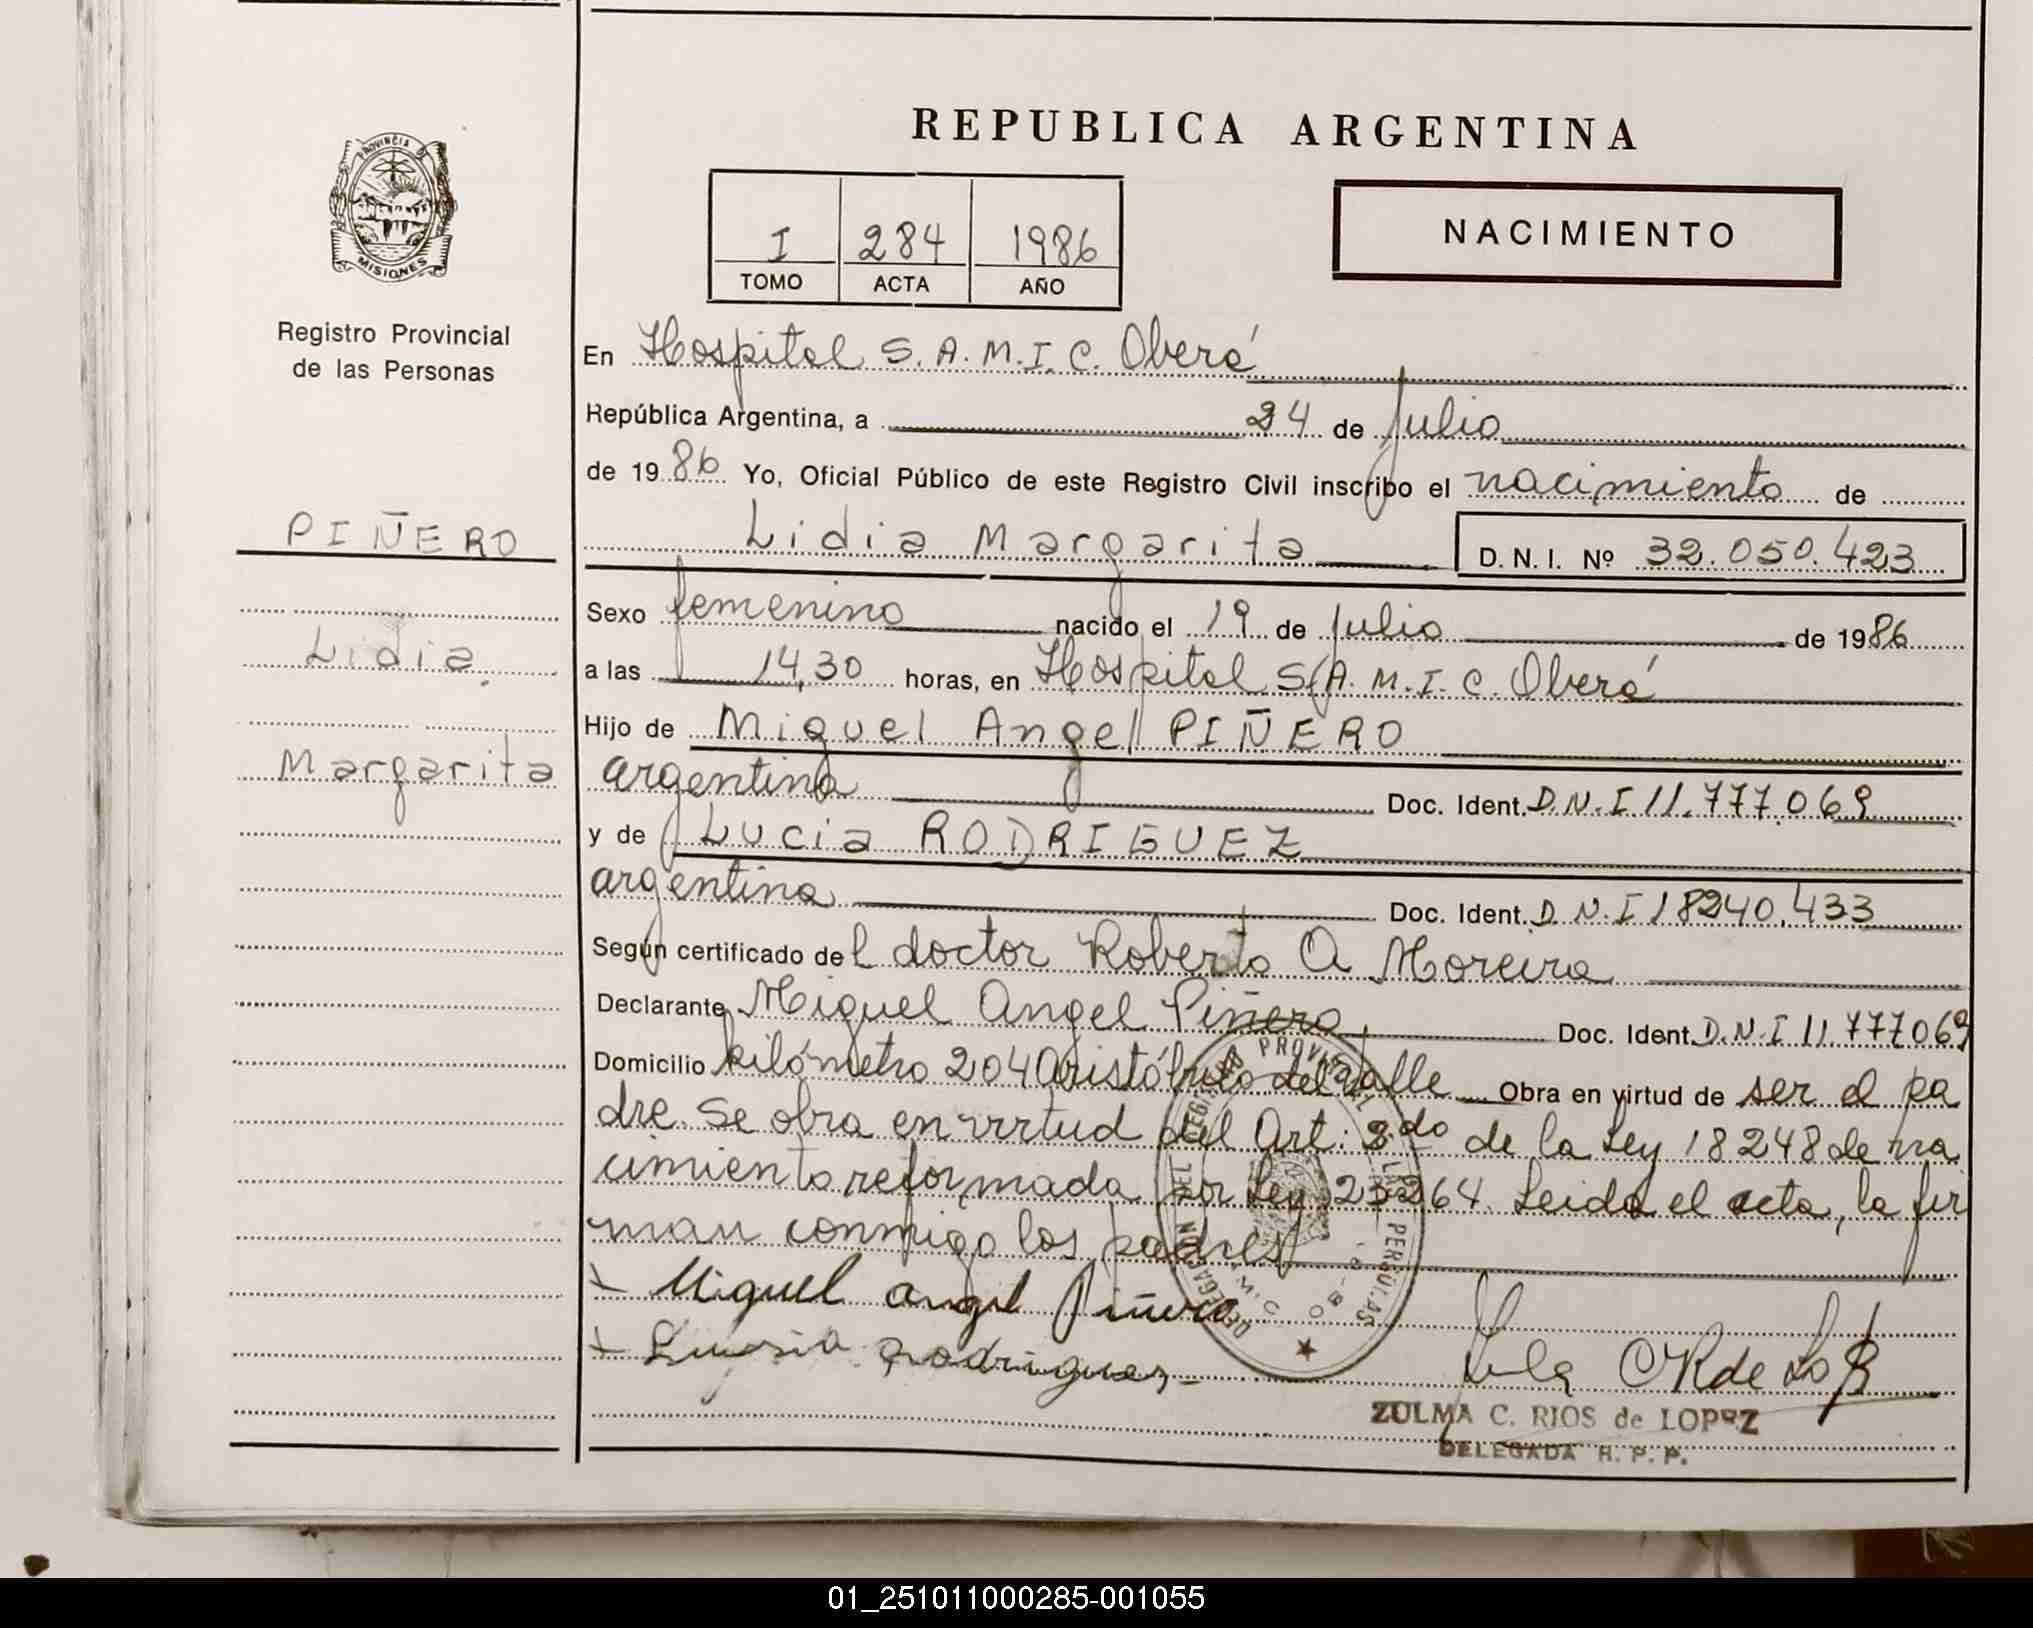 REPUBLICA ARGENTINA
PROVINCIA DE
MISIONES
Registro Provincial
de las Personas
I 284 1986
TOMO ACTA AÑO
NACIMIENTO
En Hospital S.A.M.I.C. Oberá
República Argentina, a 24 de Julio
de 1986 Yo, Oficial Público de este Registro Civil inscribo el nacimiento de
PIÑERO
Lidia Margarita D. N. I. Nº 32.050.423
Sexo femenino nacido el 19 de Julio de 1986
Lidia
a las 14,30 horas, en Hospital S.A.M.I.C. Oberá
Hijo de Miguel Angel PIÑERO
Margarita
argentina Doc. Ident. D.N.I 11.777.069
y de Lucia RODRIGUEZ
argentina Doc. Ident. D.N.I 18240.433
Según certificado del doctor Roberto A Moreira
Declarante Miguel Angel Piñero, Doc. Ident. D.N.I 11.777069
Domicilio kilómetro 204 Aristóbulo del Valle Obra en virtud de ser el pa
dre. Se obra en virtud del Art: 2do de la Ley 18248 de na
cimiento reformada por Ley 23264. Leida el acta, la fir
man conmigo los padres
Miguel angel Piñero
Lucsia Rodriguez
ZULMA C. RIOS de LOPEZ
DELEGADA R. P. P.
01_251011000285-001055